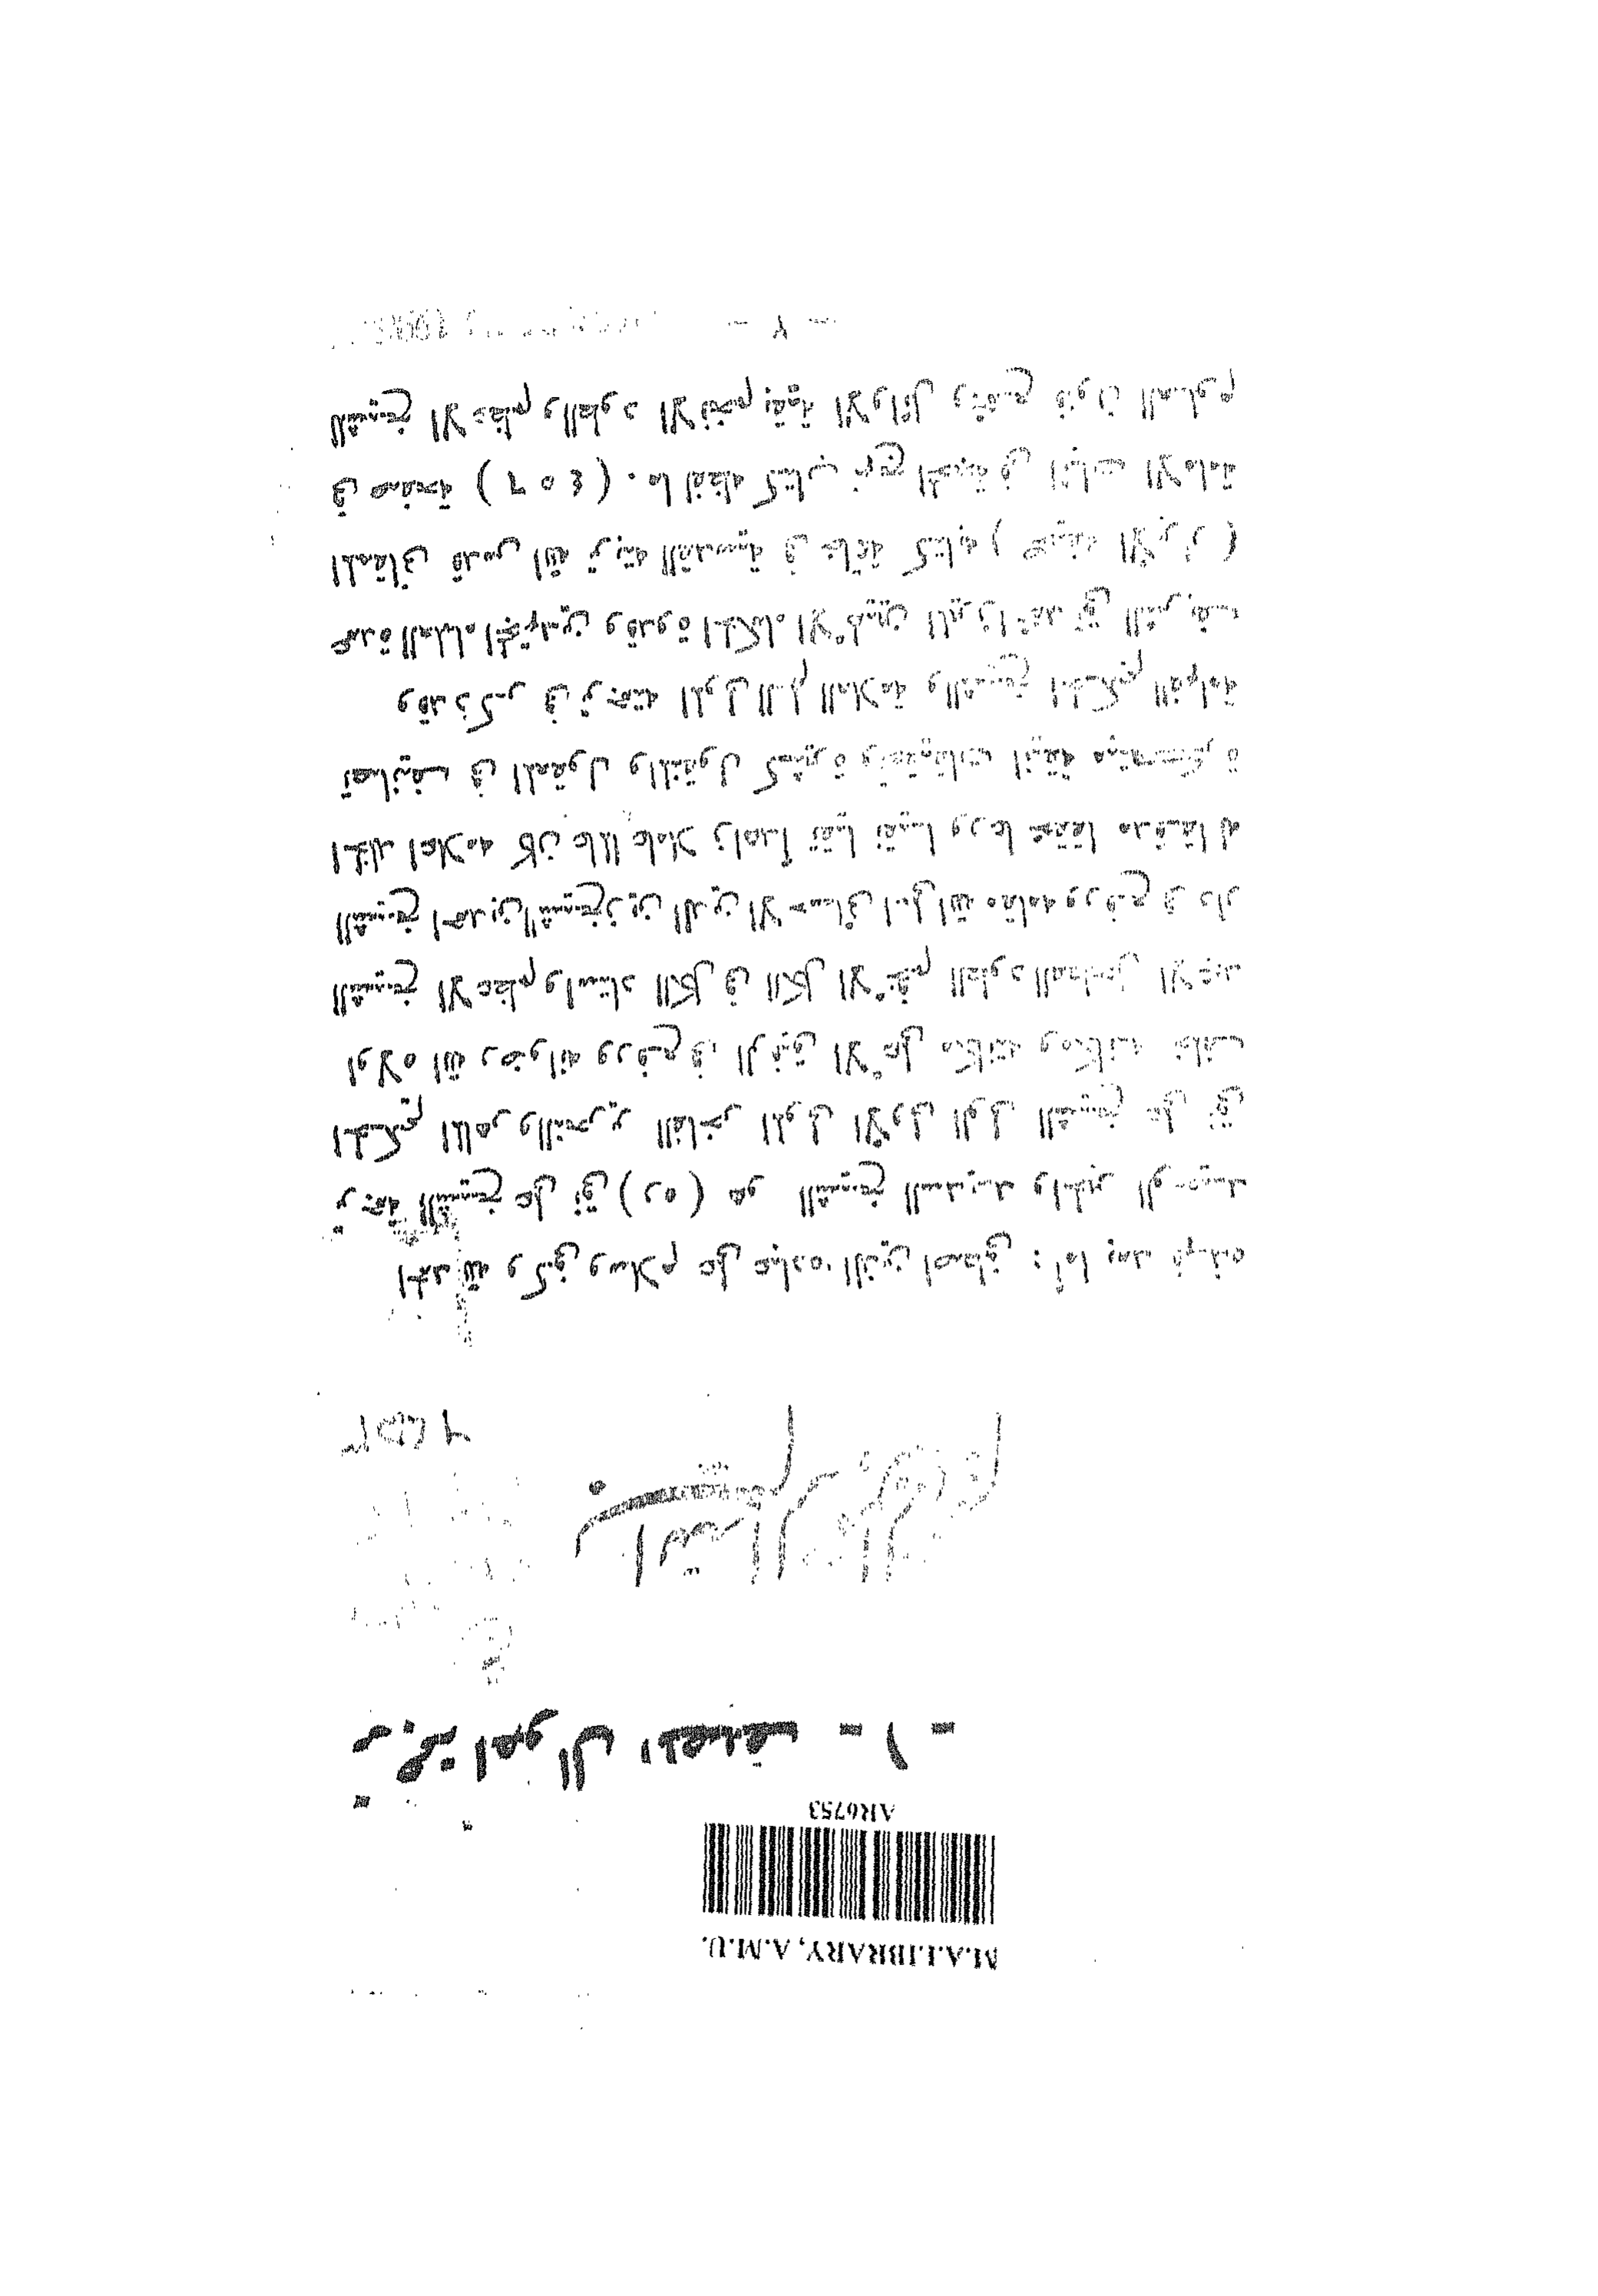 M.A.LIBRARY, A.M.U.
AR6753
ترجمة احوال المصنف - ١ -
الحمد لله وكفى وسلام على عباده الذين اصطفى : أما بعد فهذه
ترجمة الشيخ على نقى (ره) هو الشيخ السديد والحبر الوحيد
الحكيم الماهر والنحرير الفاخر المولى الاولى الولى الشيخ على نقى
اولاه الله رضوانه ورفع فى الرفيق الأعلى مكانته ومكانه خلف
الشيخ الاعظم واستاد الكل فى الكل الأفخم الطود الاوحد
الشيخ احمد بن الشيخ زين الدين الاحسائى اعلى الله مقامه ورفع فى دار
الخلد اعلامه كان عالما عاملا زاهدا تقيا نقيا ورعا محققا مدققا له
تصانيف فى المعقول والمنقول كثيرة وتحقيقات انيقة
وقد ذكر فى ترجمته المولى العلامة والشيخ الحكيم الفهامة
عمدة العلماء المجتهدين وقدوة الحكماء الالهيين الميرزا محمد تقى الشريف
المقانى قدس الله تربته القدسية فى خاتمة كتابه ( صحيفة الابرار )
فى صفحة (٤٥٦) . ما لفظه كتاب نهج المحجة فى اثبات الامامة
الشيخ الاعظم والطود الاشم بقية الاوائل فنون العلوم